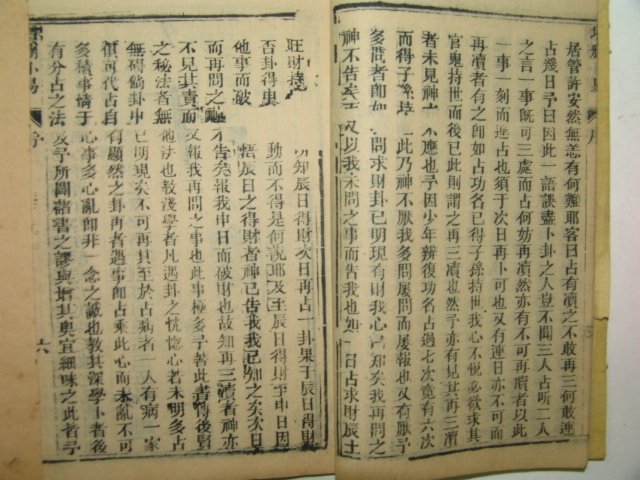 居官許安然無恙有何難耶客曰占有瀆之不敢再三何敢連
占幾日予曰因此一語誤盡卜卦之人豈不聞三人占聽二人
之言一事旣可三處而占何妨再瀆然亦有不可再瀆者以此
一事一刻而連占也須于次日再卜可也又有連日亦不可而
再瀆者有之卽如占功名已得子孫持世我心不悅必欲求其
官鬼持世而後已此則謂之再三瀆也然予亦有見其再三瀆
者未見神 不應也予因少年辨復功名占過七次竟有六次
而得子孫持 此乃神不厭我多問屢問而屢報也又有厭予
多問者卽如 問求財卦已明現有財我心已知矣我再問之
神不告矣 又以我未問之事而告我也如 日占求財辰土
旺財持 知辰日得財次日再占一卦果于辰日得財
否卦得 動而不得是何說耶及至辰日得財至申日因
他事而破 悟辰日之得財者神已告我我已知之矣次日
而再問之 不告矣報我申日而破財也故知再三瀆者神亦
不見其責而又報我再問之事也此事極多予著此書傳後賢
之秘法者無他法也教淺學者凡遇卦之恍惚心者未明多占
無碍倘卦中已明現矣不可再其至於占病者一人有病一家
俱可代占自有顯然之卦再者遇事卽占乘此心而未亂不可
多積事情于心事多心亂卽非一念之誠也教其深學卜者後
有分占之法及予所闢諸書之謬與增其奧宜細味之此者予
序
六